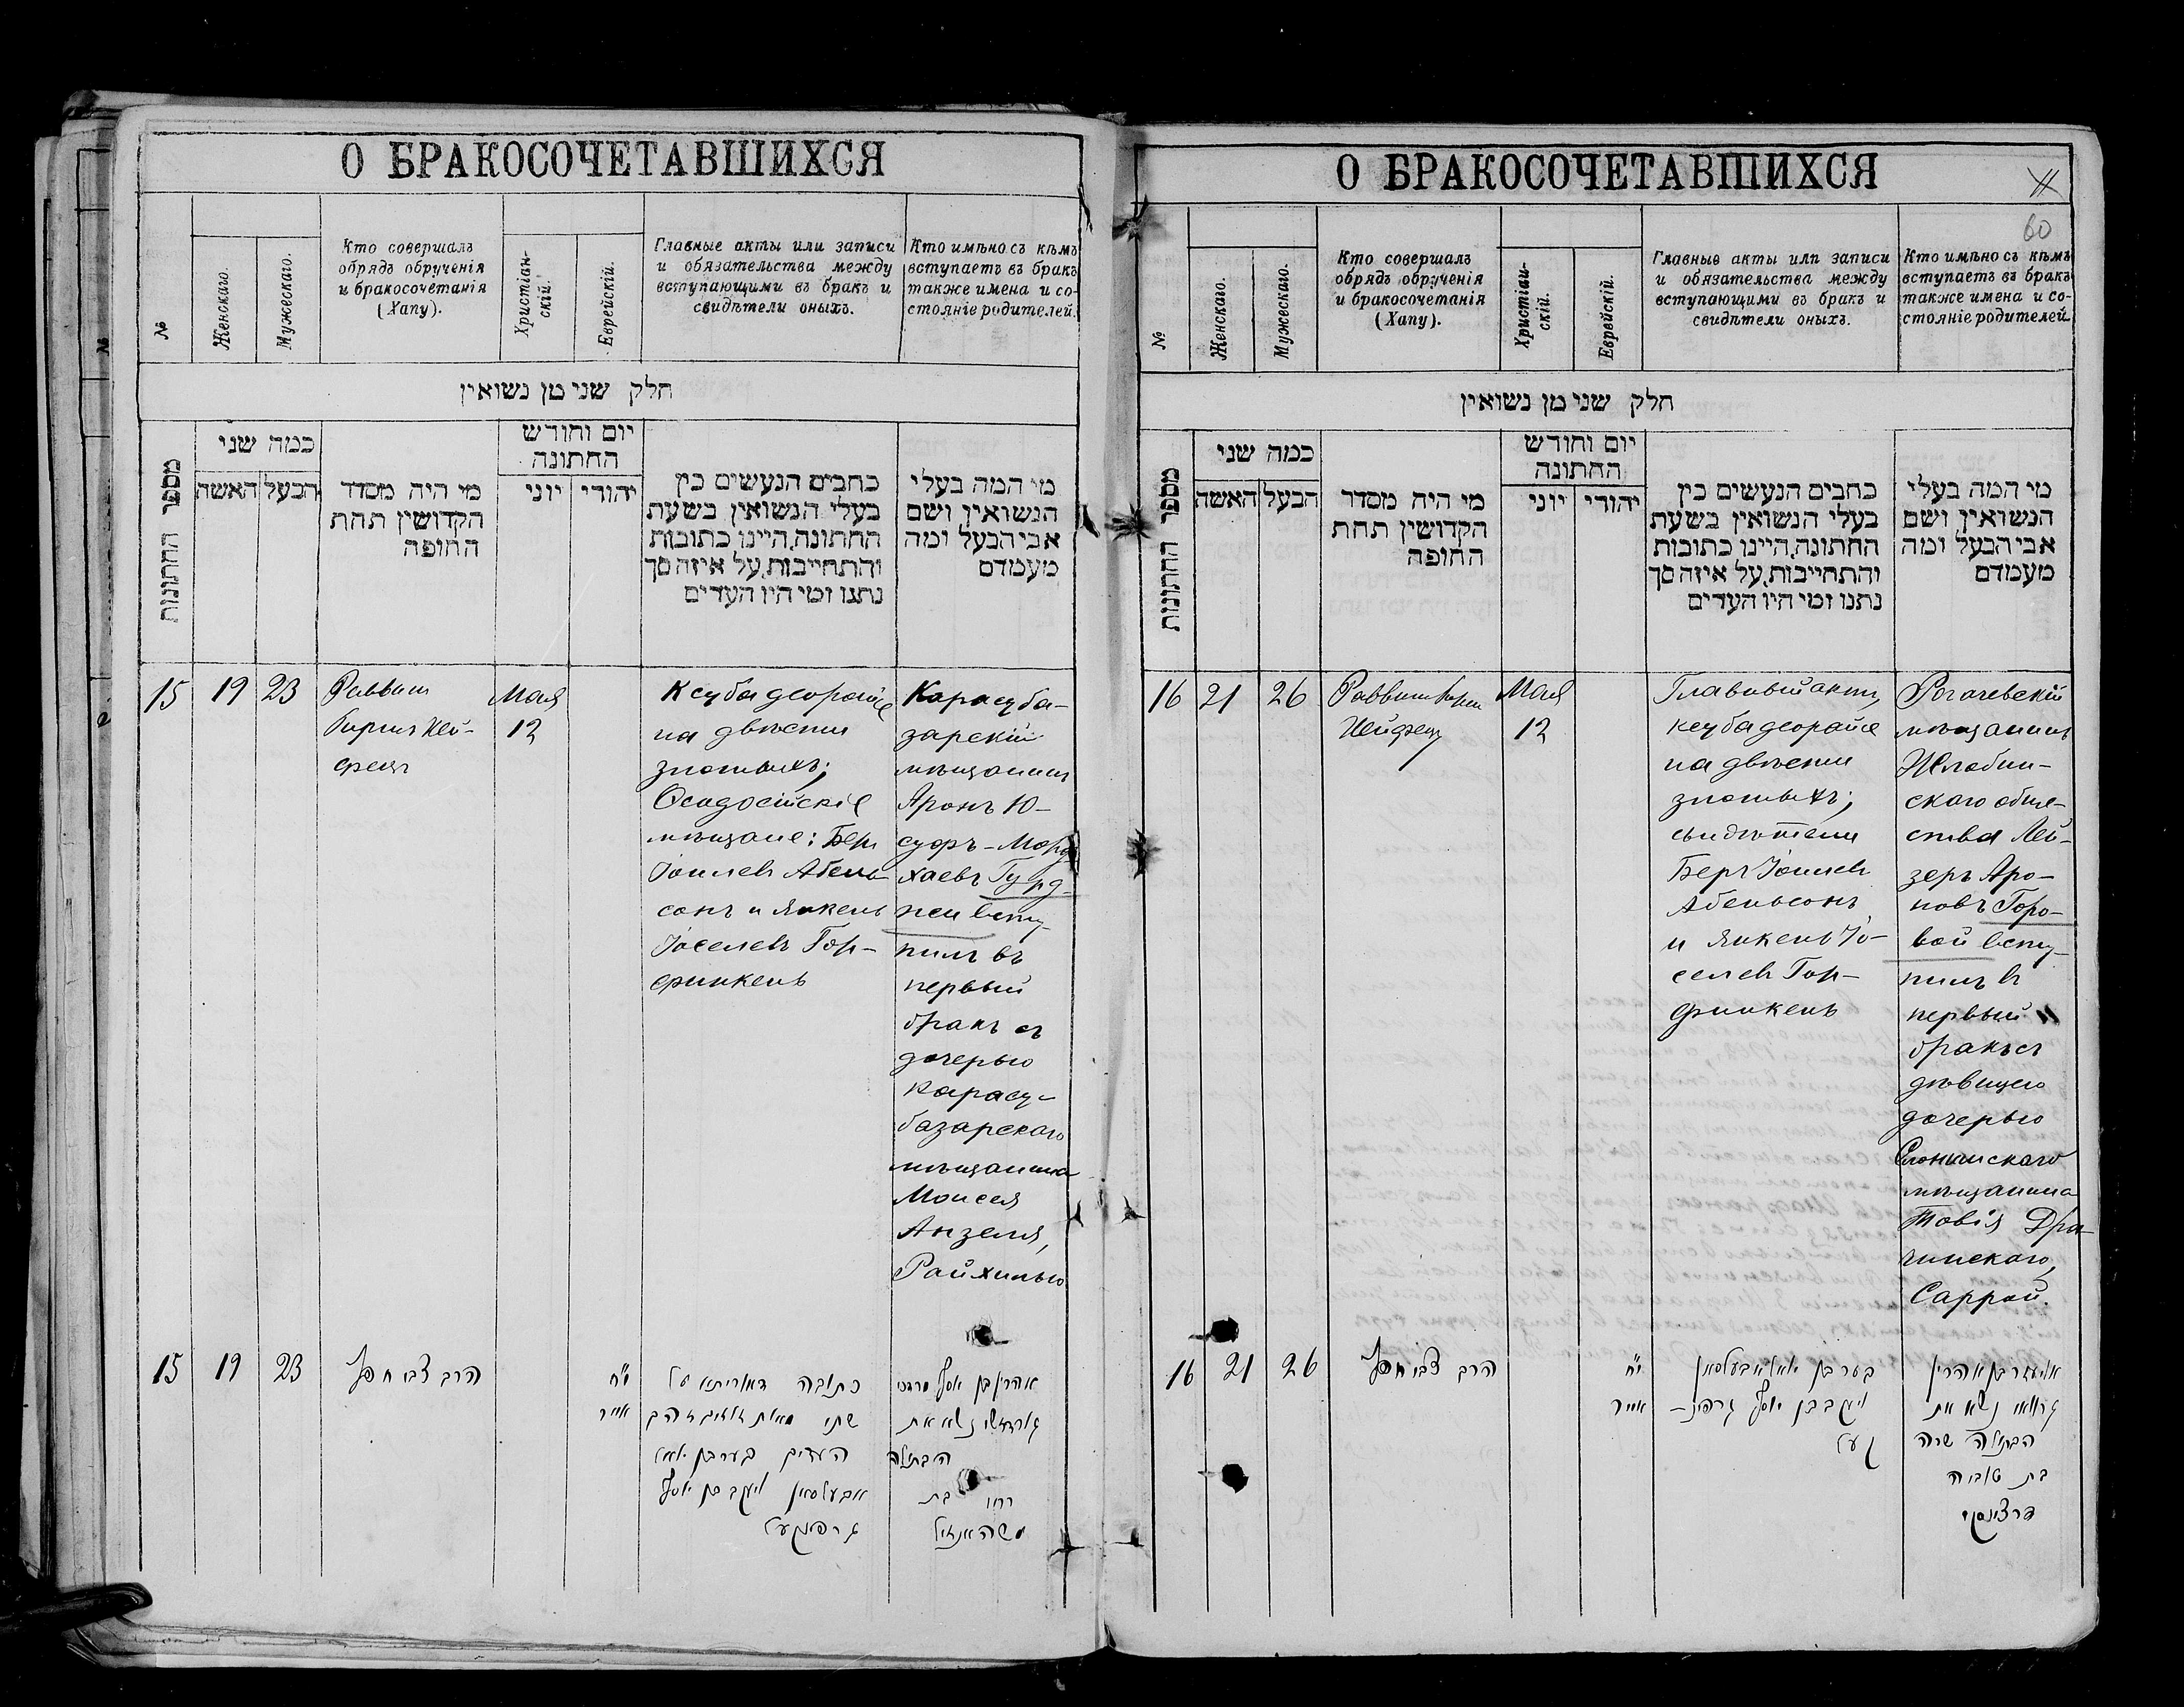 О БРАКОСОЧЕТАВШИХСЯ
№
Женскаго.
Мужескаго.
Кто совершалъ
обрядъ обрученія
и бракосочетанія
(Хапу).
Христіан-
скій.
Еврейскій.
Главные акты или записи
и обязательства между
вступающими въ бракъ и
свидѣтели оныхъ.
Кто имѣно съ кѣмъ
вступаетъ въ бракъ
также имена и со-
стояніе родителей.
חלק שני מן נשואין
מספר החתונות
כמה שני
האשה
הבעל
מי היה מסדר
הקדושין תחת
החופה
יום וחודש
החתונה
יוני
יהודי
כתבים הנעשים בין
בעלי הנשואין בשעת
החתונה, היינו כתובות
והתחייבות, על איזה סך
נתנו ומי היו העדים
מי המה בעלי
הנשואין ושם
אבי הבעל ומה
מעמדם
15
19
23
Раввин
Гирш Хей-
фецъ
Мая
12
Ксуба деорайсе
на двѣсти
златыхъ;
Ѳеодосійскіе
мѣщане: Беръ
Іоилевъ Абель-
сонъ и Янкель
Іоселевъ Гор-
финкель
Карасуба-
зарскій
мѣщанинъ
Аронъ Ю-
суфъ-Морд
хаевъ Гурд-
жи всту-
пилъ въ
первый
бракъ съ
дочерью
Карасу-
базарскаго
мѣщанина
Моисея
Анзеля,
Райхилью
15
19
23
הרב צבי חפץ
י״ח
אייר
כתובה דאורייתא על
שתי מאות זהב
העדים בער בן יואל
אבעלסאן ויעקב בן יוסף
גרפינקעל
אהרן בן יוסף מרדכי
גורדזשי נשא את
הבתולה
בת
משה אנזיל
О БРАКОСОЧЕТАВШИХСЯ
60
№
Женскаго.
Мужескаго.
Кто совершалъ
обрядъ обрученія
и бракосочетанія
(Хапу).
Христіан-
скій.
Еврейскій.
Главные акты или записи
и обязательства между
вступающими въ бракъ и
свидѣтели оныхъ.
Кто имѣно съ кѣмъ
вступаетъ въ бракъ
также имена и со-
стояніе родителей
חלק שני מן נשואין
מספר החתונות
כמה שני
האשה
הבעל
מי היה מסדר
הקדושין תחת
החופה
יום וחודש
החתונה
יוני
יהודי
כתבים הנעשים בין
בעלי הנשואין בשעת
החתונה, היינו כתובות
והתחייבות, על איזה סך
נתנו ומי היו העדים
מי המה בעלי
הנשואין ושם
אבי הבעל ומה
מעמדם
16
21
26
Раввин Гирш
Хейфец
Мая
12
Главный актъ,
ксуба деорайсе
на двѣсти
златыхъ;
свидѣтели
Беръ Іоилевъ
Абельсонъ
и Янкель Іо-
селевъ Гор-
финкель
Рогачевскій
мѣщанинъ
Жлобин-
скаго обще-
ства Лей-
зеръ Аро-
новъ Горо-
вой всту-
пилъ въ
первый
бракъ съ
дѣвицею
дочерью
Слонимскаго
мѣщанина
Товія Дра-
чинскаго,
Саррой.
16
21
26
הרב צבי חפץ
י״ח
אייר
בער בן יואל אבעלסאן
ויעקב בן יוסף גרפינ-
קעל
אליעזר בן אהרן
נשא את
הבתולה שרה
בת טוביה
דרצינסקי